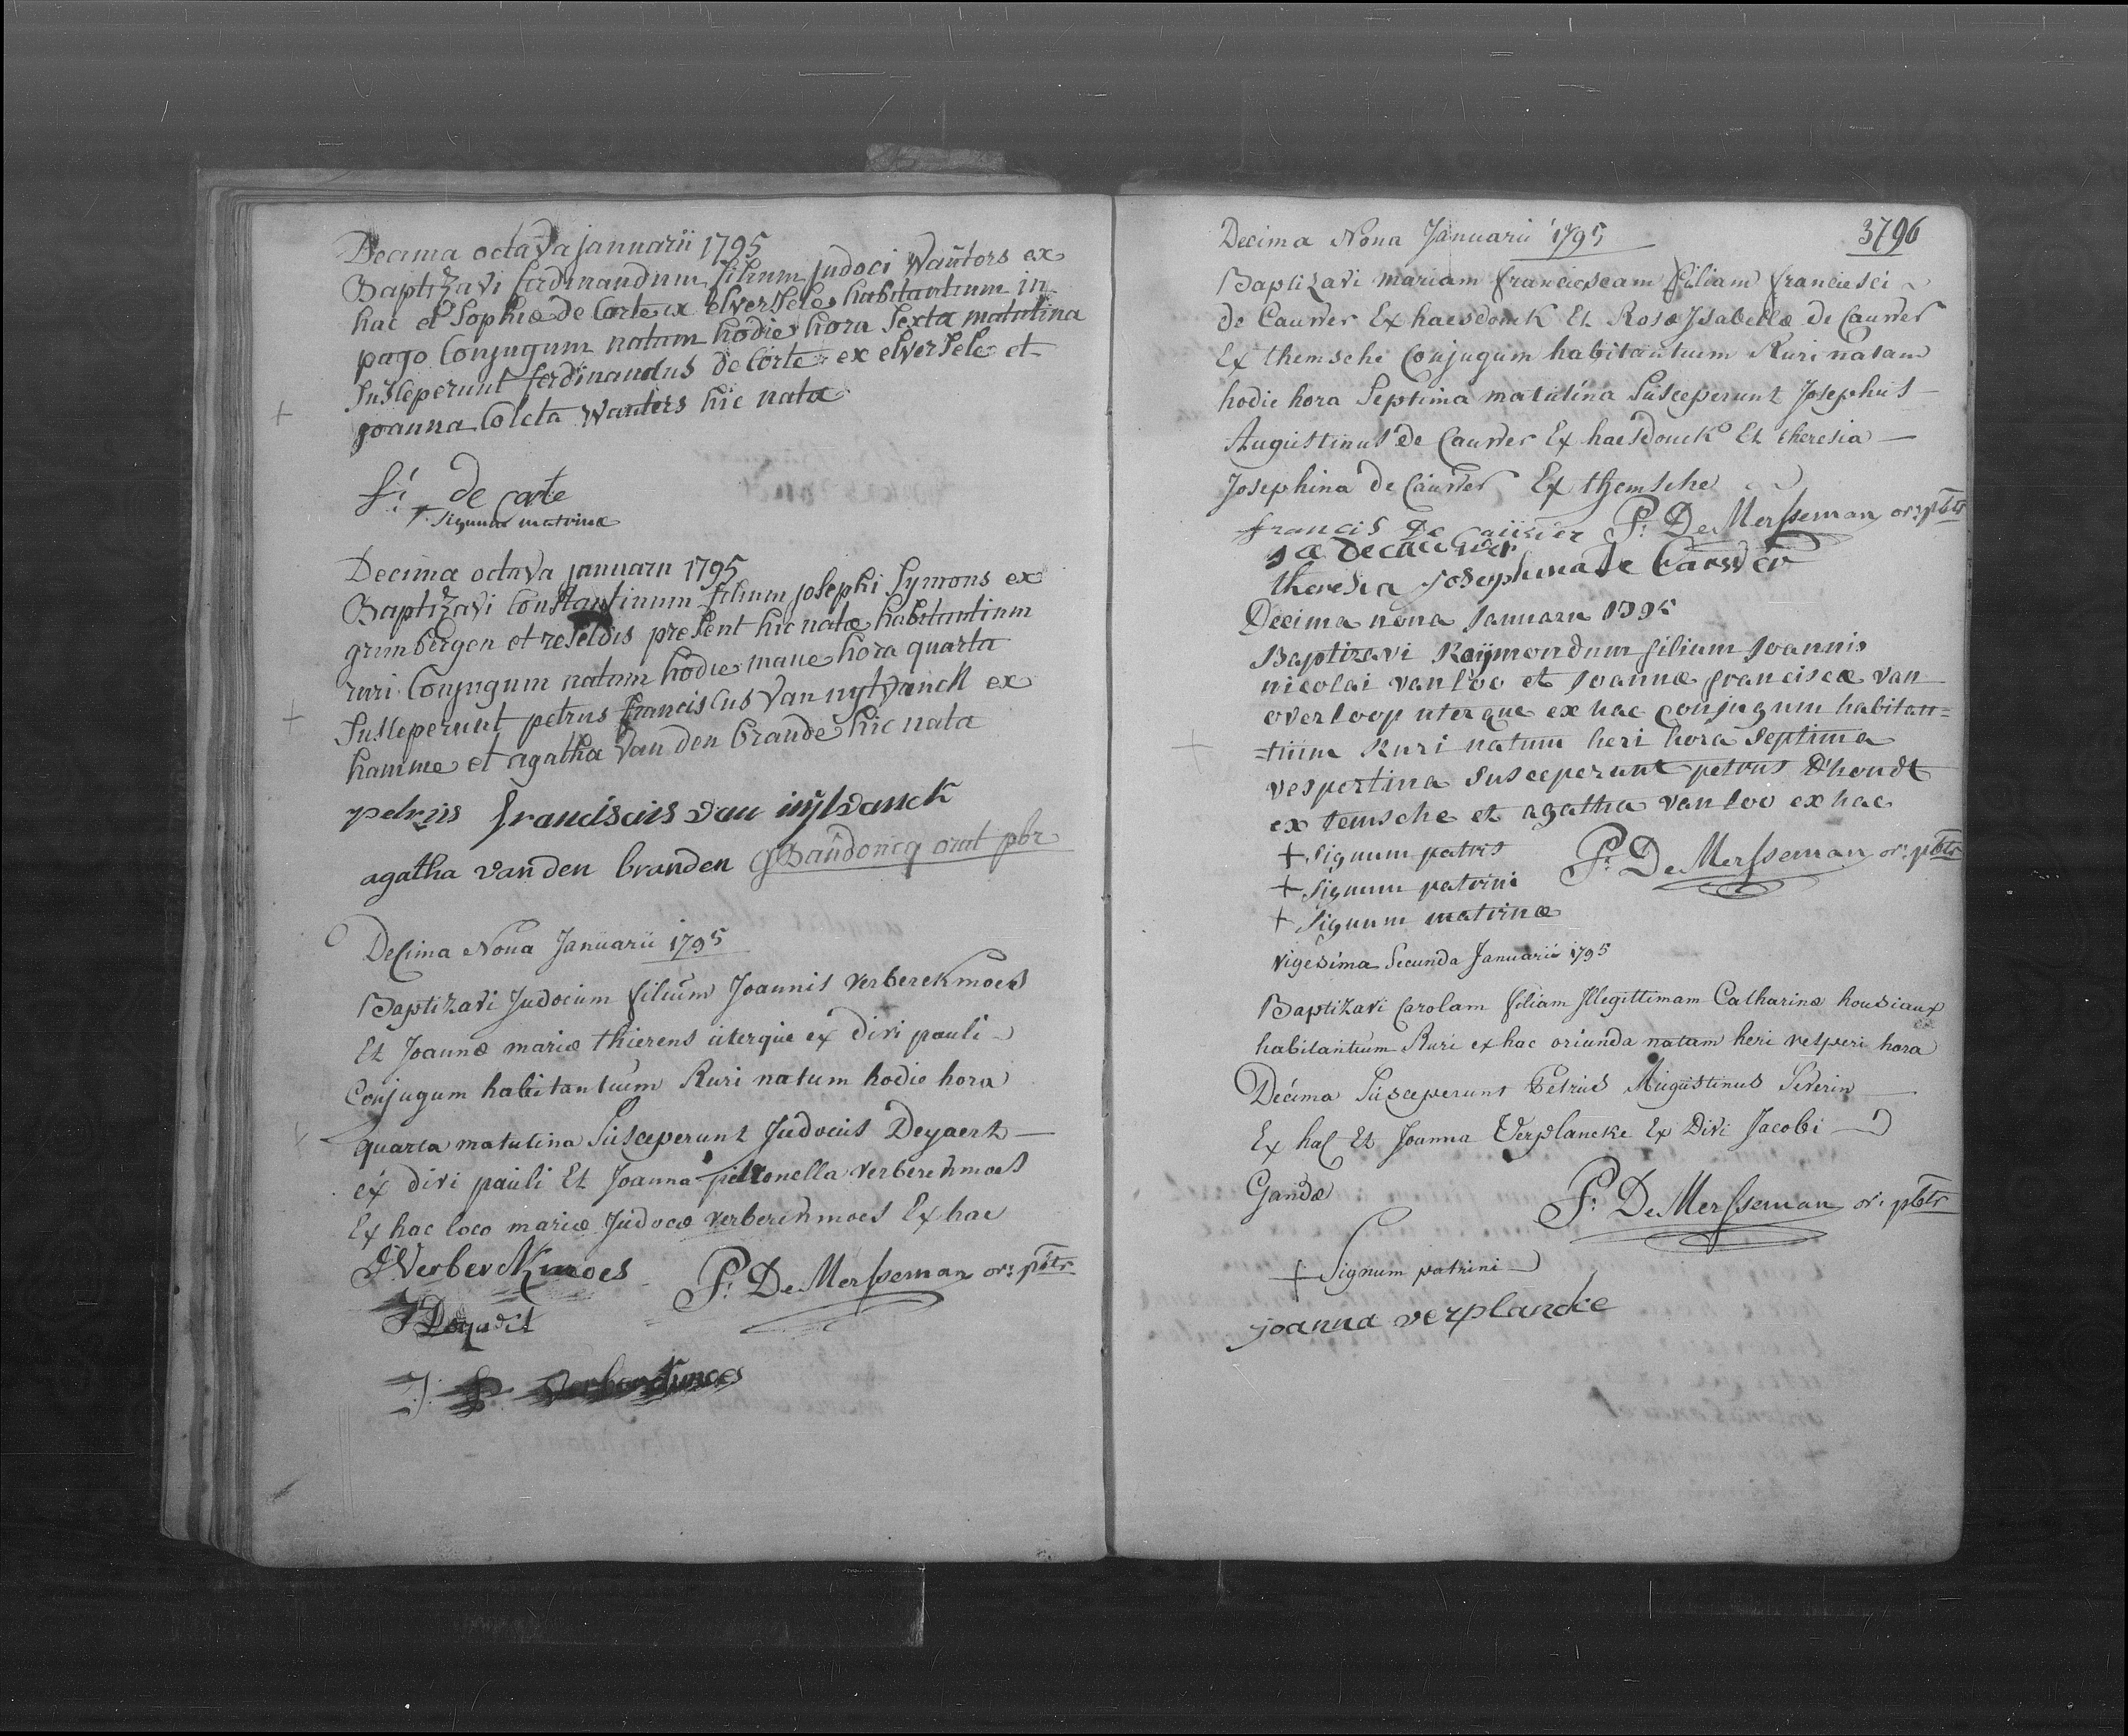 Decima octava januarii 1795
Baptizavi ferdinandum filium Judoci Wauters ex
hac et Sophiæ de Corte ex Elversele habitantium in
pago Conjugum natum hodie hora sexta matutina
Susceperunt ferdinandus de Corte ex elversele et
joanna Coleta Wauters hic nata
f: de Corte
+ Signum matrinæ
Decima octava januarii 1795
Baptizavi Constantinum filium josephi Symons ex
grimbergen et reseldis present hic natæ habitantium
ruri Conjugum natum hodie mane hora quarta
Susceperunt petrus franciscus van nytvanck ex
hamme et agatha Van den brande hic nata
petrus franciscus van nytvanck
agatha van den branden G Baudoncq orat pbr
Decima Nona Januarii 1795
Baptizavi Judocum filium Joannis Verberckmoes
Et Joannæ mariæ thierens uterque ex divi pauli
Conjugum habitantium Ruri natum hodie hora
quarta matutina Susceperunt Judocus Deyaert
ex divi pauli Et Joanna petronella verberckmoes
Ex hac loco mariæ Judocæ verberckmoes Ex hac
J Verberckmoes
P: De Mersseman or: pbtr
J
J: P verberckmoes
Decima Nona Januarii 1795
3796
Baptizavi mariam franciescam filiam franciesci
de Cauwer Ex haesdonck Et Rosæ Isabellæ de Cauwer
Ex themsche Conjugum habitantium Ruri natam
hodie hora Septima matutina Susceperunt Josephus
Augustinus de Cauwer Ex haesdonck Et theresia
Josephina de Cauwer Ex themsche
francis de Cauwer P: De Mersseman or: pbtr
j a decauwer
theresia josephina de Cauwer
Decima nona Januarii 1795
Baptizavi Raijmondum filium Joannis
nicolai van loo et Joannæ franciscæ van
overloop uterque ex hac conjugum habitan=
=tium Ruri natum heri hora septima
vespertina susceperunt petrus D'hondt
ex temsche et agatha van loo ex hac
+ Signum patris P: De Mersseman or: pbtr
+ Signum patrini
+ Signum matrinæ
Vigesima Secunda Januarii 1795
Baptizavi Carolam filiam Illegittimam Catharinæ housiaux
habitantium Ruri ex hac oriunda natam heri vesperi hora
Decima Susceperunt Petrus Augustinus Severin
Ex hac Et Joanna Verplancke Ex Divi Jacobi
Gandæ
P: De Mersseman or: pbtr
+ Signum patrini
joanna verplancke